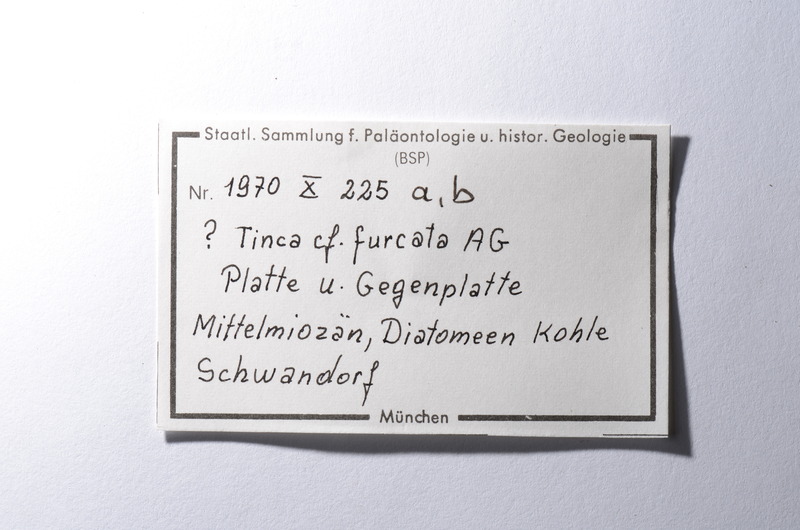 Staatl. Sammlung f. Paläontologie u. histor. Geologie
(BSP)
Nr. 1970 X 225 a, b
? Tinca cf. furcata AG
Platte u. Gegenplatte
Mittelmiozän, Diatomeen Kohle
Schwandorf
München